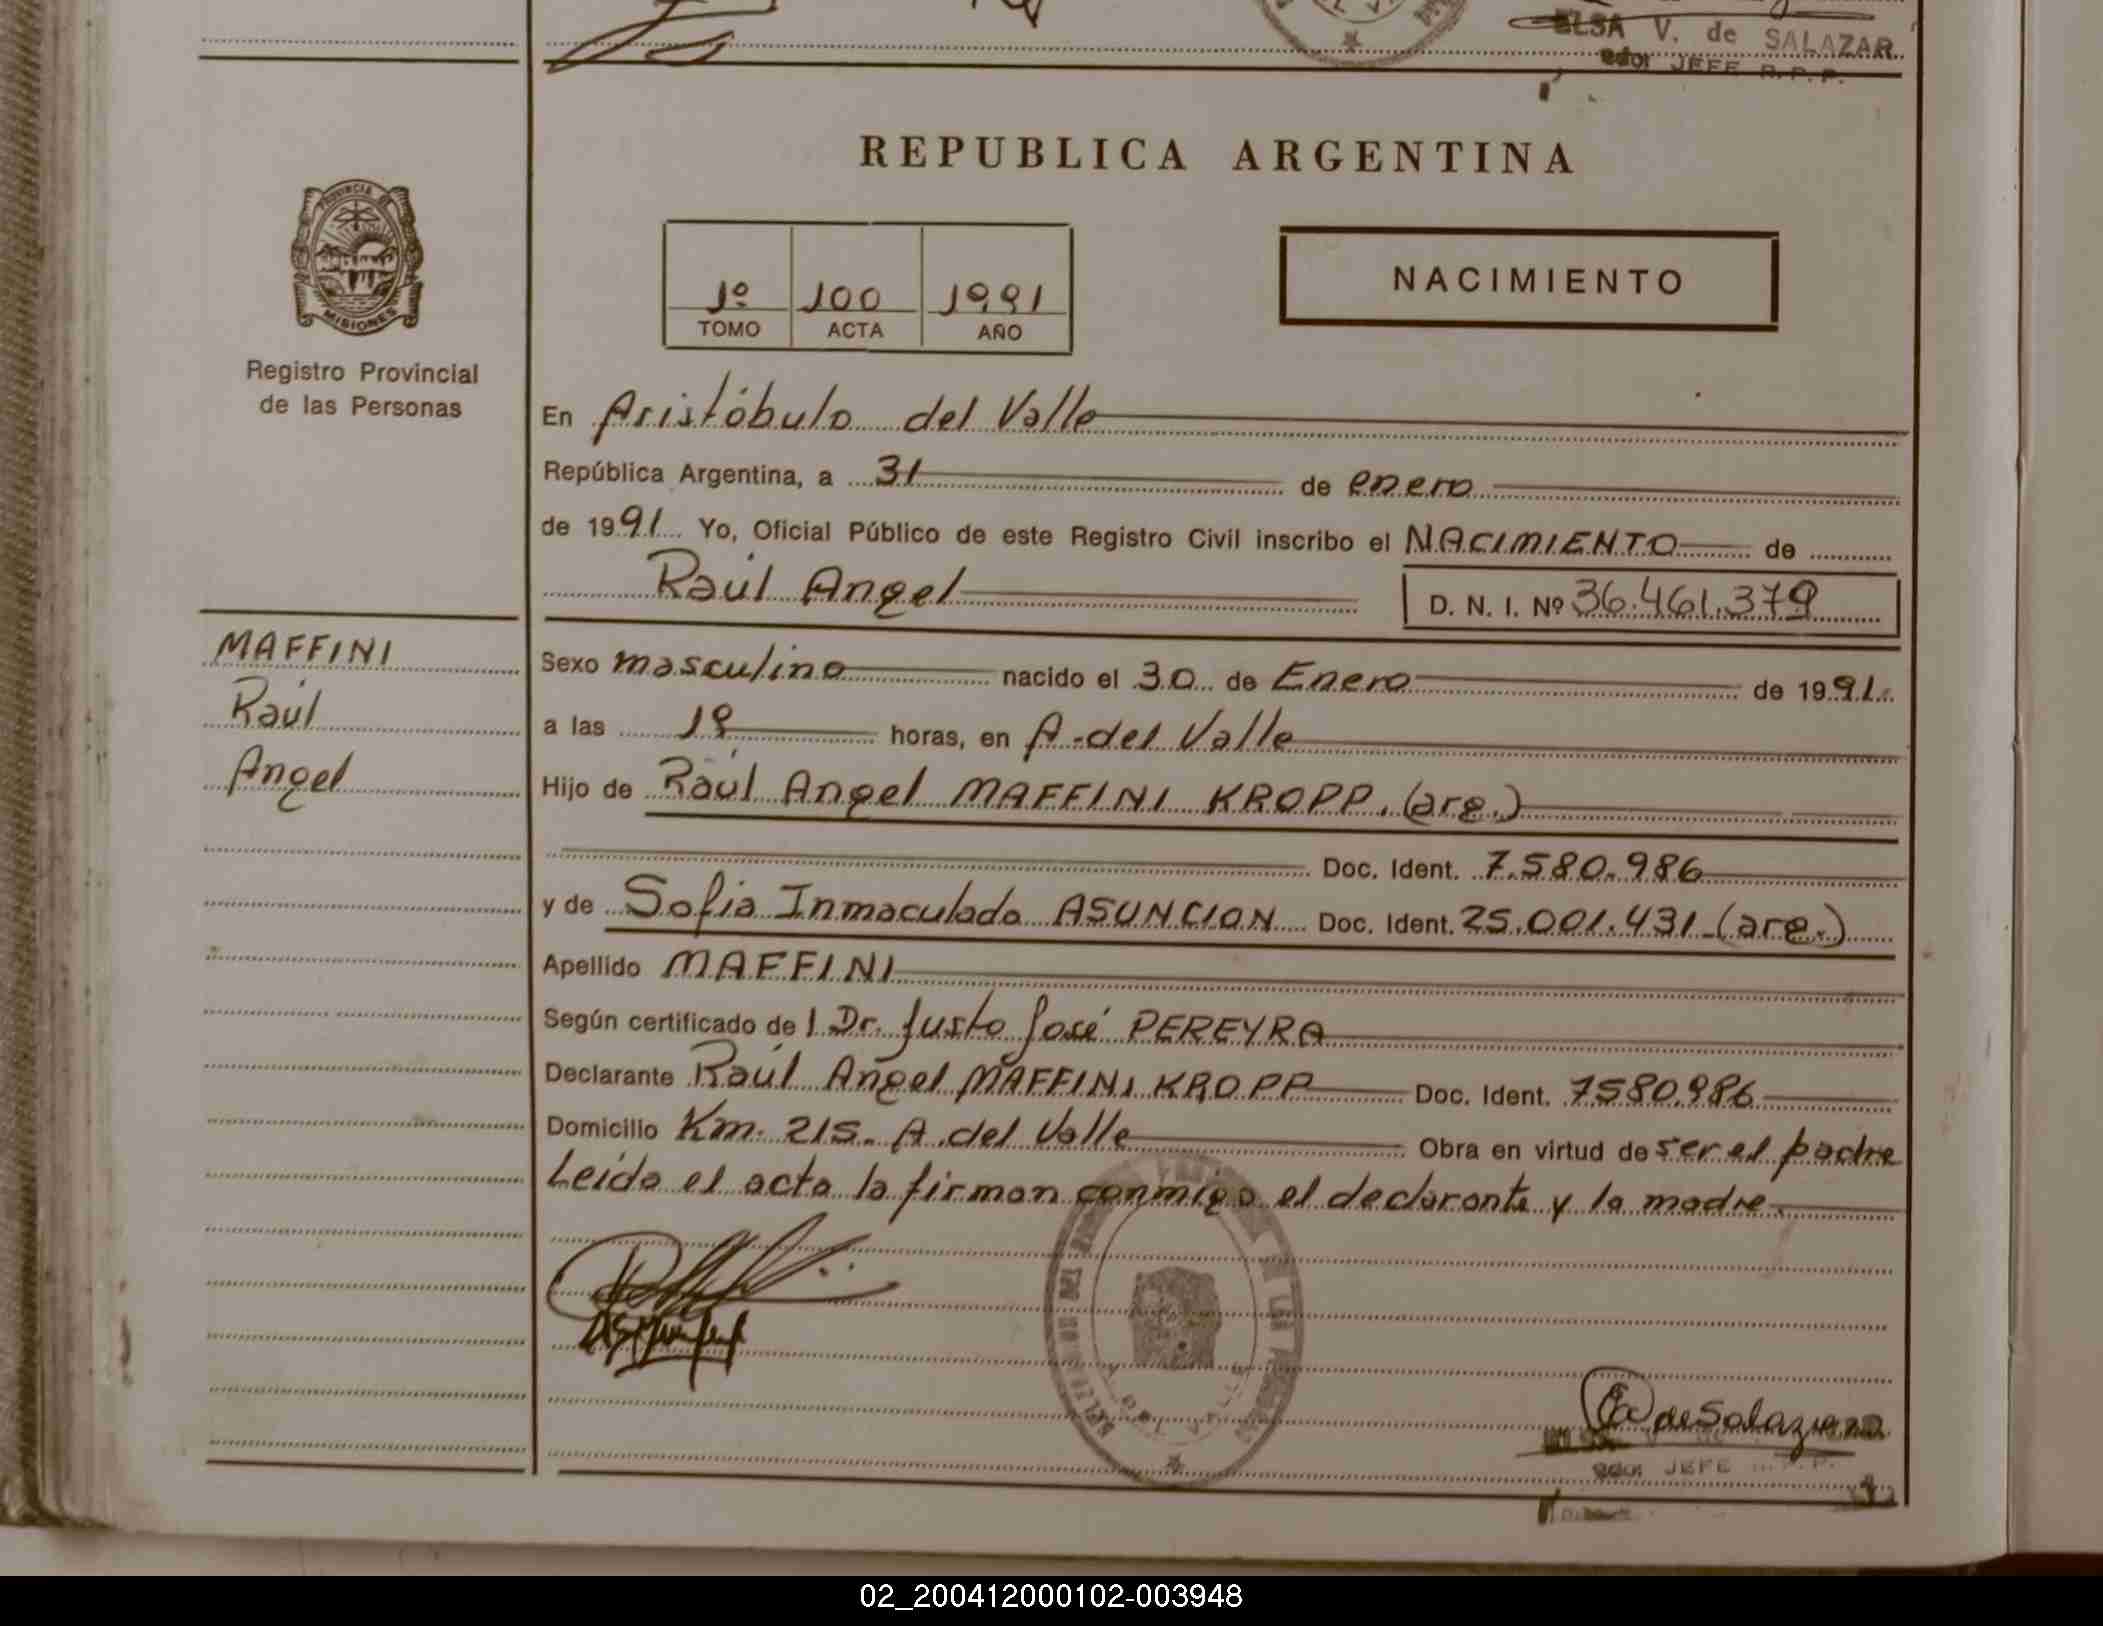 ELSA V. de SALAZAR
JEFE R. P. P.
REPUBLICA ARGENTINA
PROVINCIA DE
MISIONES
Registro Provincial
de las Personas
1º 100 1991
TOMO ACTA AÑO
NACIMIENTO
En Aristóbulo del Valle
República Argentina, a 31 de enero
de 1991 Yo, Oficial Público de este Registro Civil inscribo el NACIMIENTO de
Raúl Angel D. N. I. Nº 36.461.379
MAFFINI
Raúl
Angel
Sexo masculino nacido el 30 de Enero de 1991
a las horas, en A. del Valle
Hijo de Raúl Angel MAFFINI KROPP. (arg.)
Doc. Ident. 7.580.986
y de Sofia Inmaculada ASUNCION Doc. Ident. 25.001.431 (arg.)
Apellido MAFFINI
Según certificado de l Dr. Justo José PEREYRA
Declarante Raúl Angel MAFFINI KROPP Doc. Ident. 7580.986
Domicilio Km. 215. A. del Valle Obra en virtud de ser el padre
Leída el acta la firman conmigo el declarante y la madre.
A. DEL VALLE
de Salazar
JEFE
02_200412000102-003948